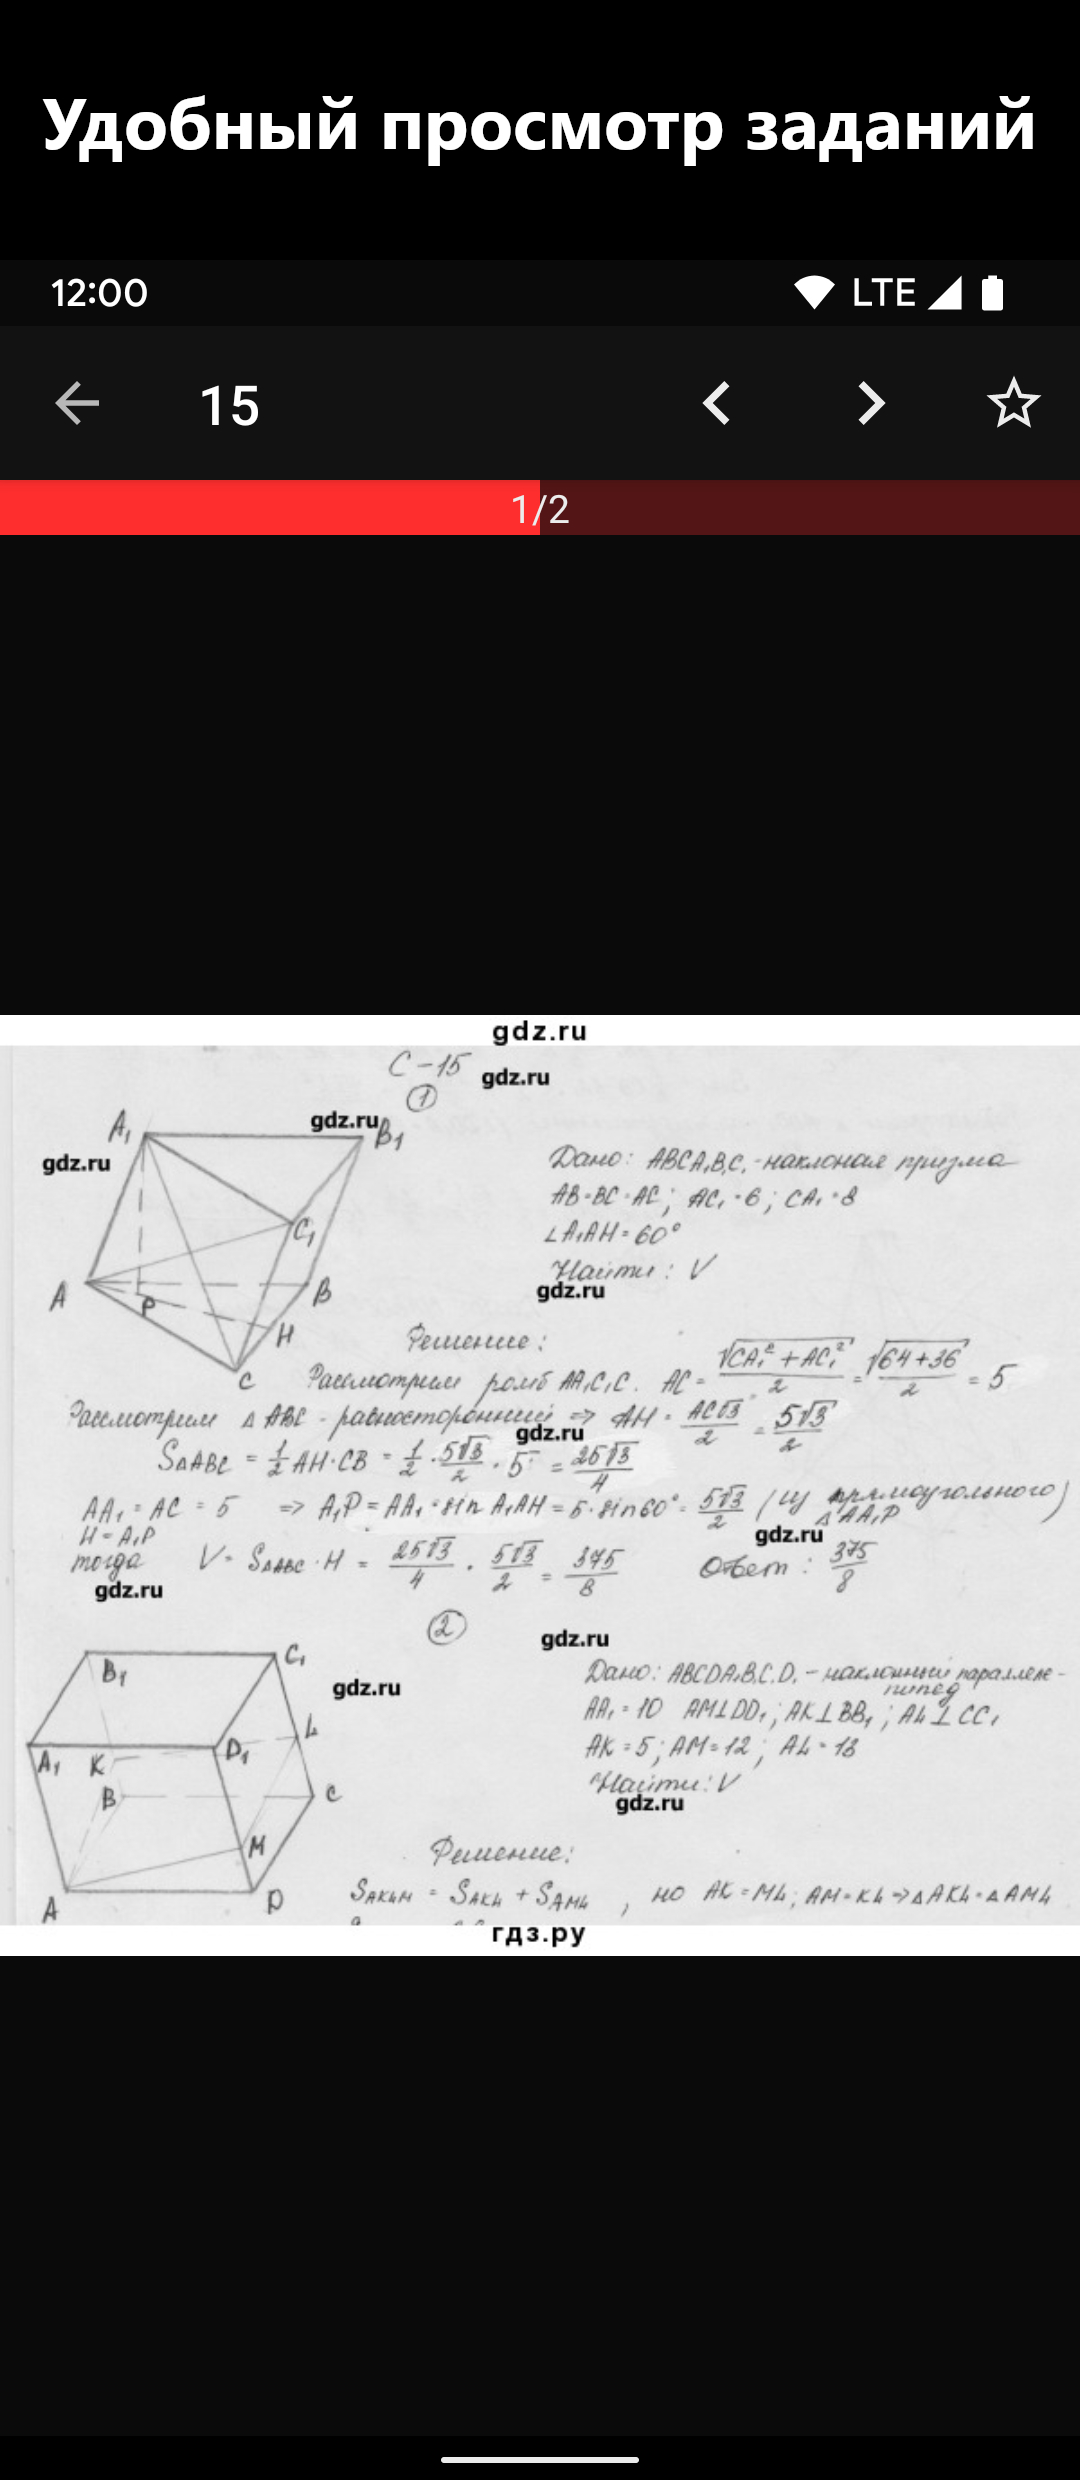 Удобный просмотр заданий
12:00 LTE
15
1/2
gdz.ru
С-15
gdz.ru
1
gdz.ru
A₁ B₁
gdz.ru
Дано: ABCA₁B₁C₁ - наклоная призма
AB=BC=AC; AC₁=6; CA₁=8
C₁
∠A₁AH=60°
Найти: V
gdz.ru
A P B
H
C
Решение:
Рассмотрим ромб AA₁C₁C. AC = √(CA₁² + AC₁²)/2 = √(64+36)/2 = 5
Рассмотрим △ABC - равносторонний ⇒ AH = AC√3/2 = 5√3/2
gdz.ru
S△ABC = 1/2 AH·CB = 1/2 · 5√3/2 · 5 = 25√3/4
AA₁ = AC = 5 ⇒ A₁P = AA₁·sin A₁AH = 5·sin60° = 5√3/2 (из прямоугольного △AA₁P)
H = A₁P
gdz.ru
тогда V = S△ABC · H = 25√3/4 · 5√3/2 = 375/8 Ответ: 375/8
gdz.ru
2
gdz.ru
B₁ C₁
Дано: ABCDA₁B₁C₁D₁ - наклонный параллелепипед
gdz.ru
AA₁=10 AM⊥DD₁; AK⊥BB₁; AL⊥CC₁
L
A₁ K D₁
AK=5; AM=12; AL=13
Найти: V
B C
gdz.ru
M
Решение:
A D
SAKLM = SAKL + SAML, но AK=ML; AM=KL ⇒ △AKL=△AML
гдз.ру